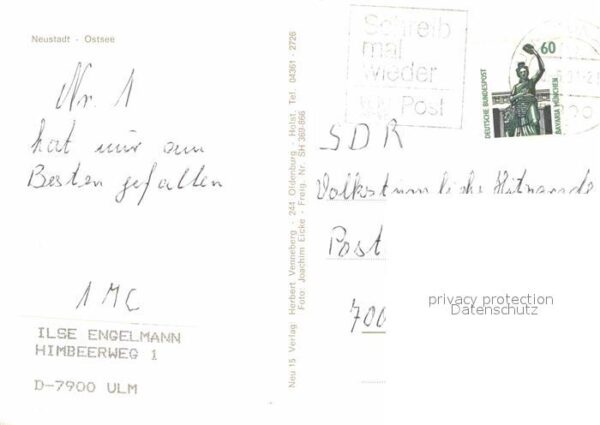 Neustadt - Ostsee
Nr. 1
hat mir am
Besten gefallen
1 MC
ILSE ENGELMANN
HIMBEERWEG 1
D-7900 ULM
Neu 15 Verlag Herbert Venneberg - 244 Oldenburg - Holst. Tel. 04361 - 2726
Foto: Joachim Eicke - Freig. Nr. SH 369-866
Schreib
mal
wieder
Post
60
DEUTSCHE BUNDESPOST
BAVARIA MÜNCHEN
SDR
Volkstümliche Hitparade
Post
700
privacy protection
Datenschutz